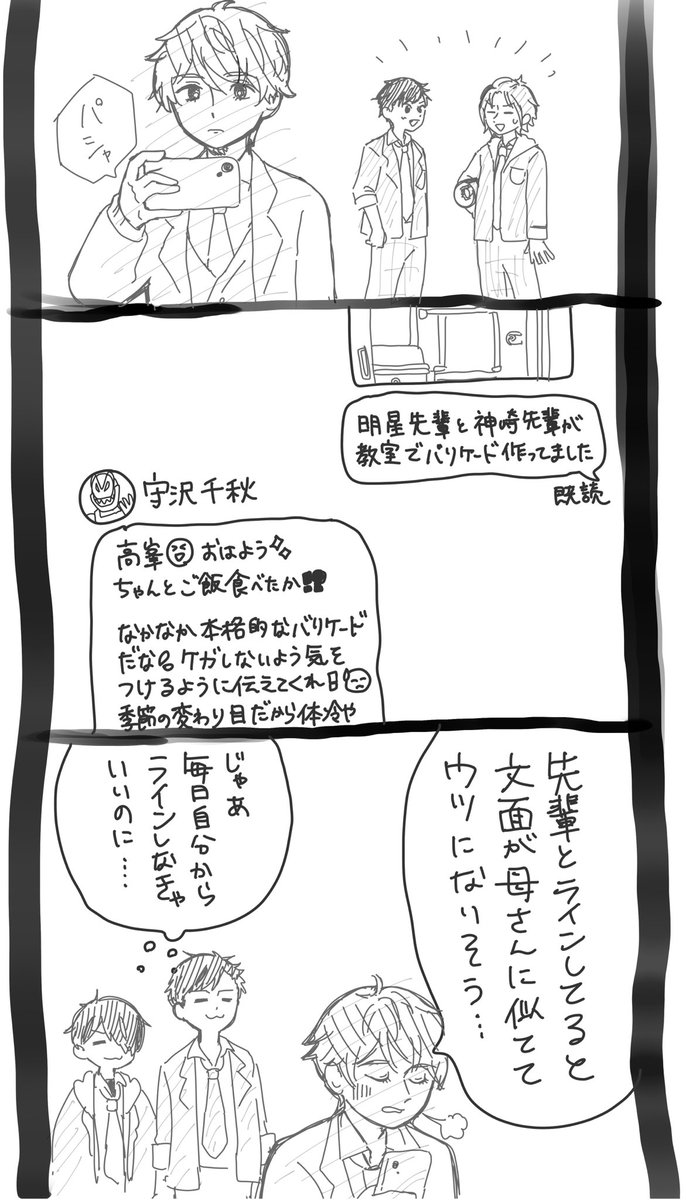 パシャ
明星先輩と神崎先輩が
教室でバリケード作ってました
既読
守沢千秋
高峯 おはよう
ちゃんとご飯食べたか!!?
なかなか本格的なバリケード
だな ケガしないよう気を
つけるように伝えてくれ
季節の変わり目だから体冷や
先輩とラインしてると
文面が母さんに似てて
ウツになりそう…
じゃあ
毎日自分から
ラインしなきゃ
いいのに…